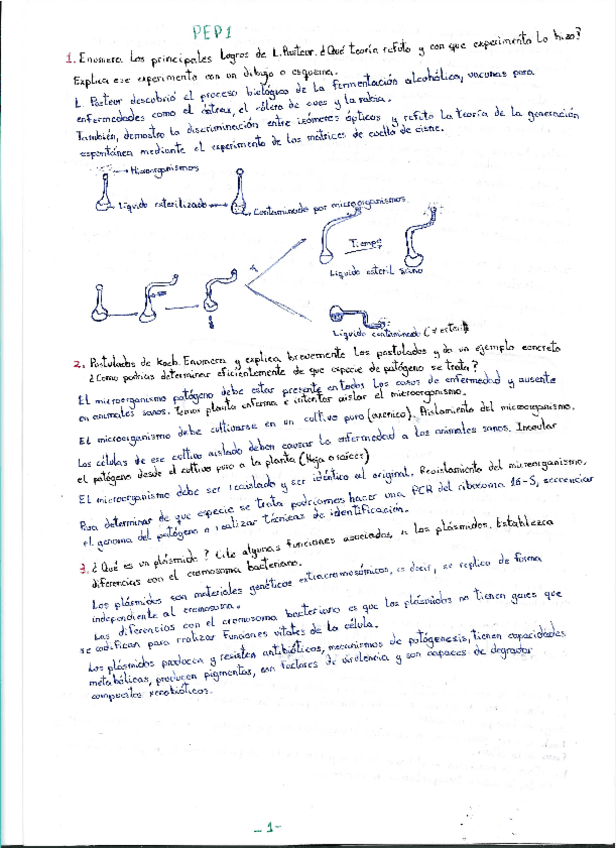 PEP1
1. Enumera los principales logros de L. Pasteur. ¿Qué teoría refuto y con que experimento lo hizo?
Explica ese experimento con un dibujo o esquema.
L. Pasteur descubrió el proceso biológico de la fermentación alcohólica, vacunas para
enfermedades como el ántrax, el cólera de aves y la rabia.
También, demostro la discriminación entre isómeros ópticos y refuto la teoría de la generación
espontánea mediante el experimento de las matrices de cuello de cisne.
Microorganismos
Líquido esterilizado
Contaminado por microorganismos
Tiempo
Líquido esteril
Líquido contaminado
2. Postulados de Koch. Enumera y explica brevemente los postulados y da un ejemplo concreto
¿Como podrias determinar eficientemente de que especie de patógeno se trata?
El microorganismo patógeno debe estar presente en todos los casos de enfermedad y ausente
en animales sanos. Tener planta enferma e intentar aislar el microorganismo.
El microorganismo debe cultivarse en un cultivo puro (axenico). Aislamiento del microorganismo.
Las células de ese cultivo aislado deben causar la enfermedad a los animales sanos. Inocular
el patógeno desde el cultivo puro a la planta (Hoja o raíces)
El microorganismo debe ser reaislado y ser idéntico al original. Reaislamiento del microorganismo.
Para determinar de que especie se trata podriamos hacer una PCR del ribosoma 16-S, secuenciar
el genoma del patógeno o realizar técnicas de identificación.
3. ¿Qué es un plásmido? Cite algunas funciones asociadas a los plásmidos. Establezca
diferencias con el cromosoma bacteriano.
Los plásmidos son materiales genéticos extracromosómicos, es decir, se replica de forma
independiente al cromosoma.
Las diferencias con el cromosoma bacteriano es que los plásmidos no tienen genes que
se codifican para realizar funciones vitales de la célula.
Los plásmidos producen y resisten antibióticos, mecanismos de patogénesis, tienen capacidades
metabólicas, producen pigmentos, son factores de virulencia y son capaces de degradar
compuestos xenobióticos.
-1-